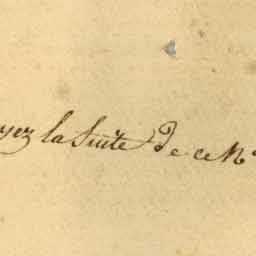 yez la Suite De ce N°